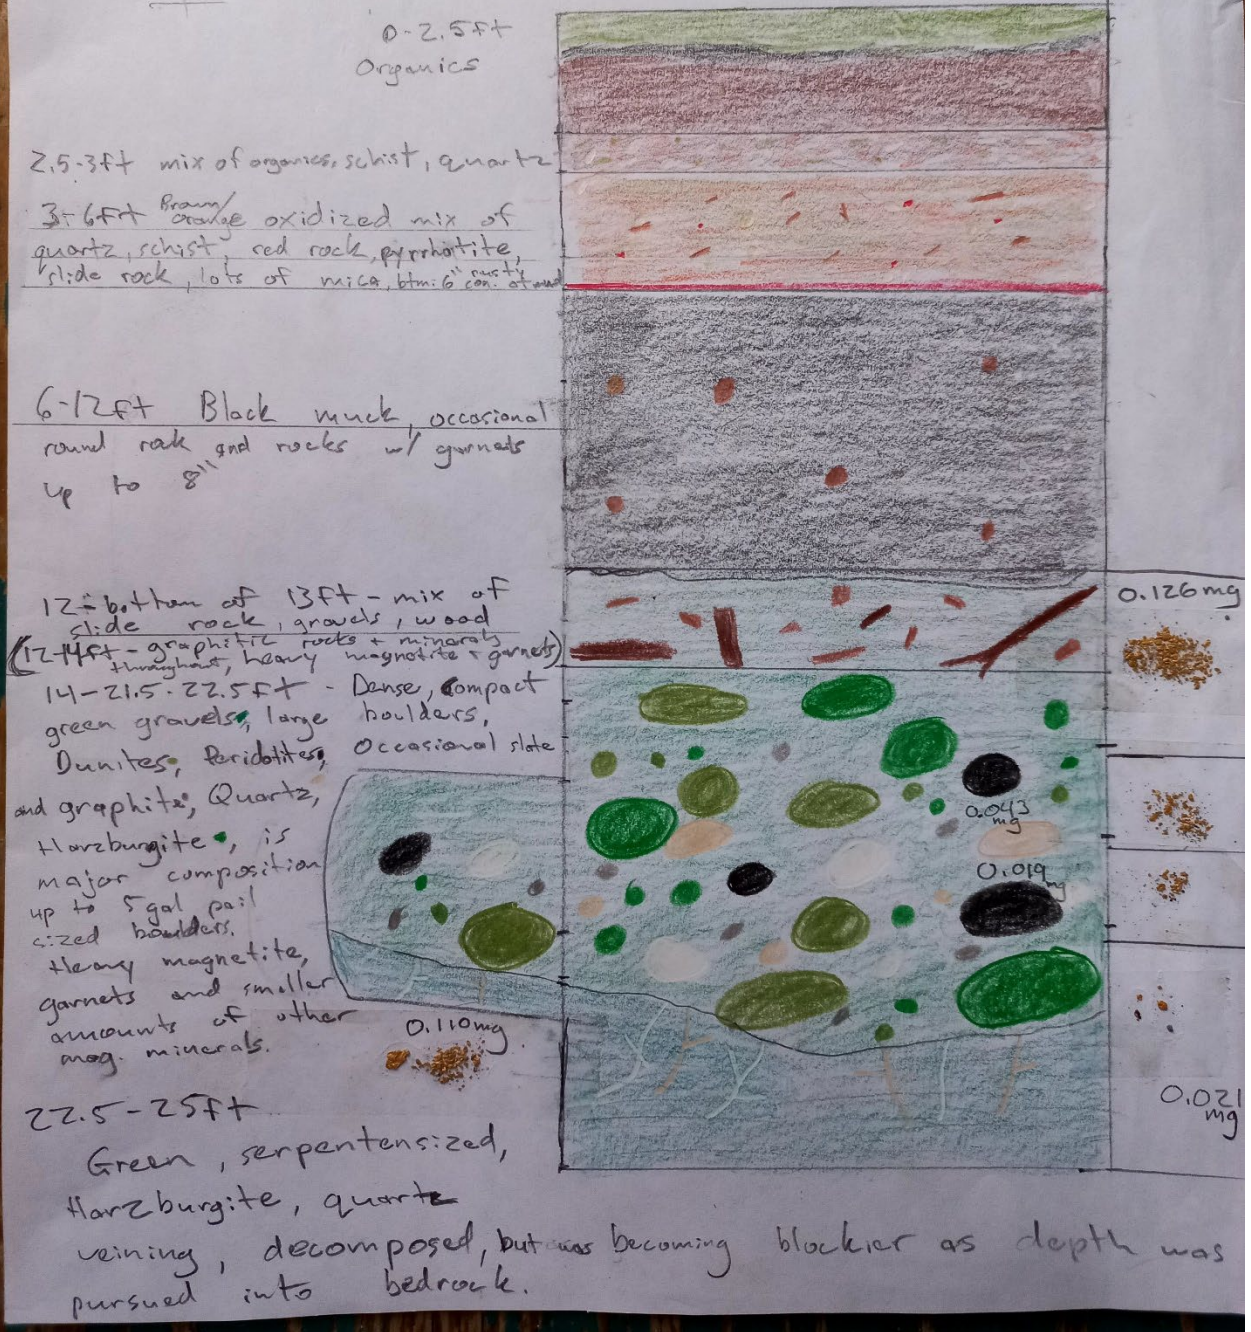 0-2.5ft
Organics
2.5-3ft mix of organics, schist, quartz
3-6ft Brown/orange oxidized mix of
quartz, schist, red rock, pyrrhotite,
slide rock, lots of mica, btm 6" rusty
6-12ft Black muck, occasional
round rock and rocks w/ garnets
up to 8"
12-bottom of 13ft - mix of
slide rock, gravels, wood
(12-14ft - graphitic rocks + minerals
throughout, heavy magnetite + garnets)
0.126mg
14-21.5-22.5ft - Dense, Compact
green gravels, large boulders,
Dunites, Peridotites, Occasional slate
and graphite, Quartz,
Harzburgite, is
major composition
up to 5 gal pail
sized boulders.
Heavy magnetite,
garnets and smaller
amounts of other
mag. minerals.
0.043
mg
0.019
mg
0.110mg
0.021
mg
22.5-25ft
Green, serpentensized,
Harzburgite, quartz
veining, decomposed, but was becoming blockier as depth was
pursued into bedrock.